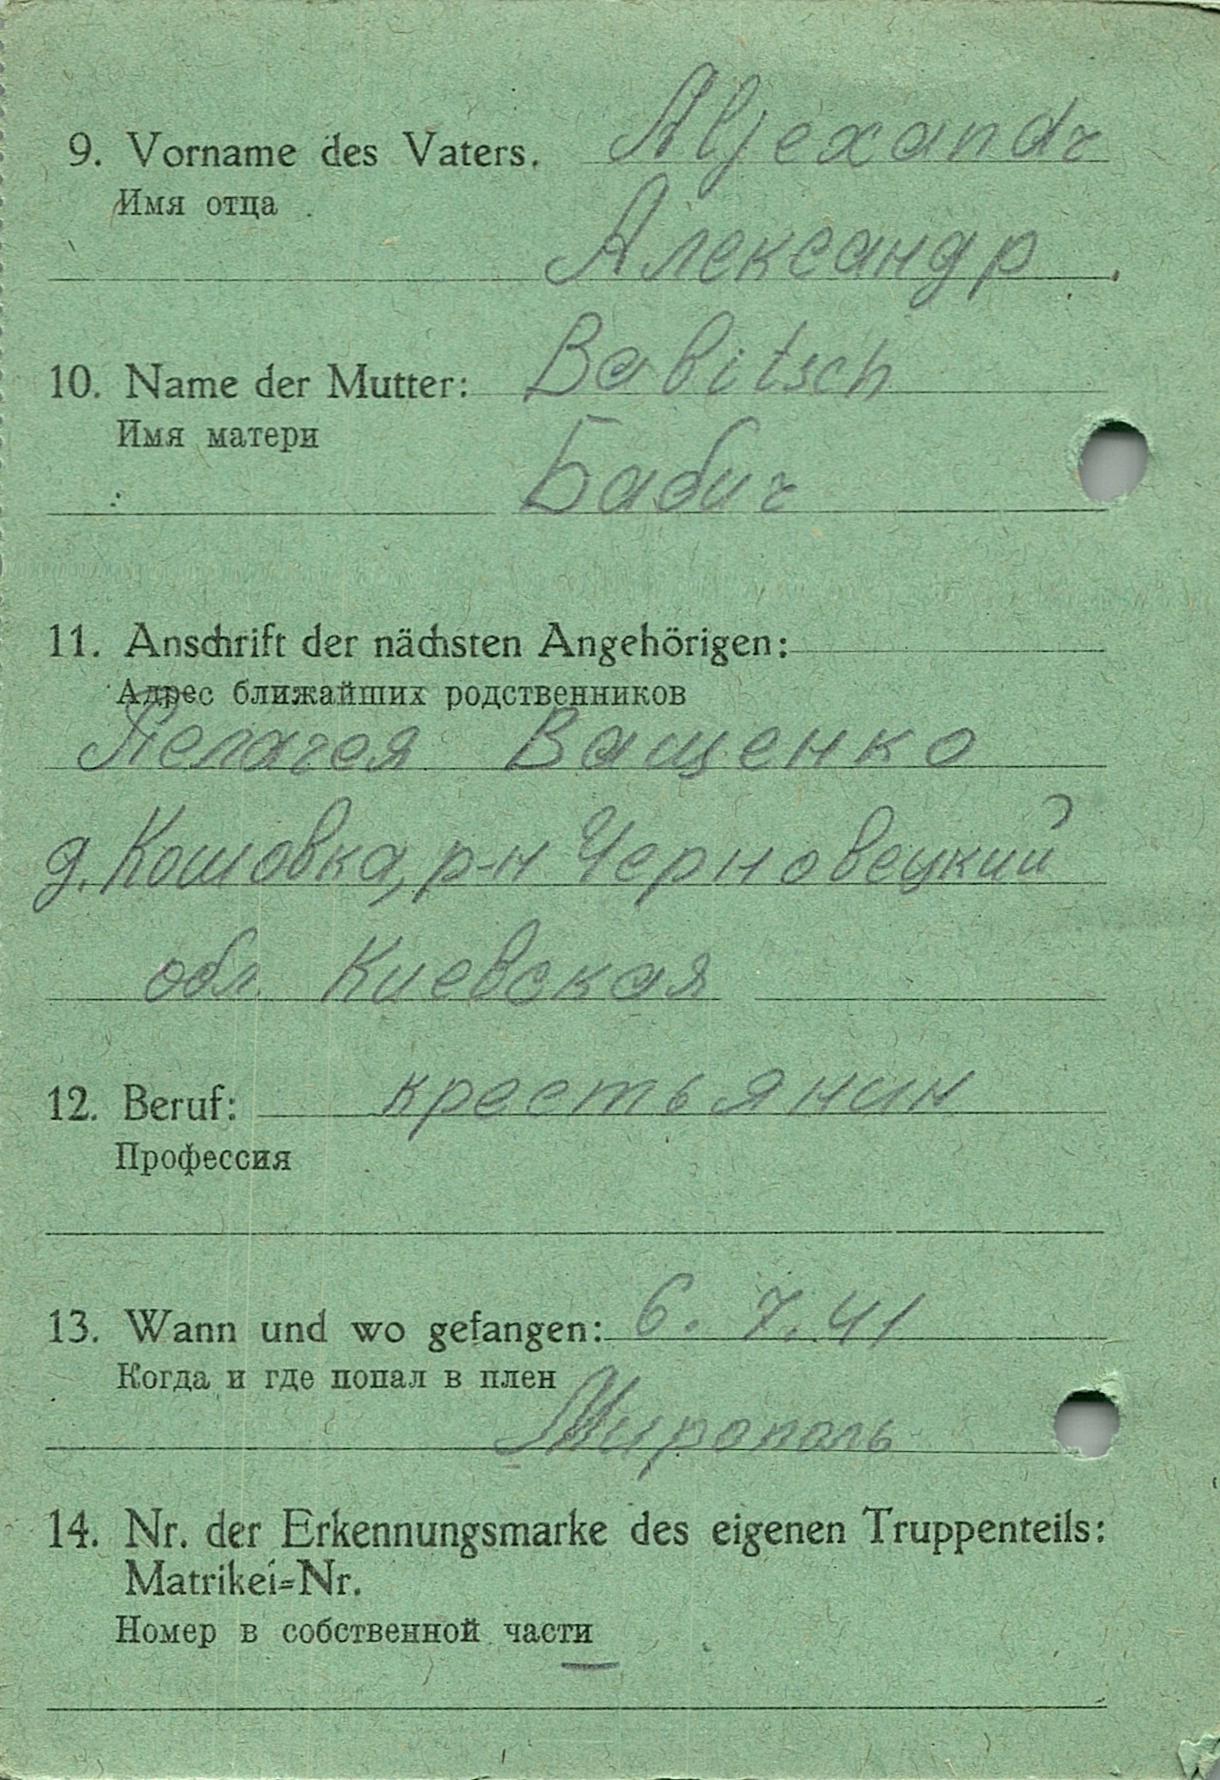 9. Vorname des Vaters. Aljexandr
Имя отца
Александр
10. Name der Mutter: Babitsch
Имя матери
Бабич
11. Anschrift der nächsten Angehörigen:
Адрес ближайших родственников
Пелагея Ващенко
д. Кошовка, р-н Черновецкий
обл. Киевская
12. Beruf: крестьянин
Профессия
13. Wann und wo gefangen: 6. 7. 41
Когда и где попал в плен
Мирополь
14. Nr. der Erkennungsmarke des eigenen Truppenteils:
Matrikei=Nr.
Номер в собственной части
—